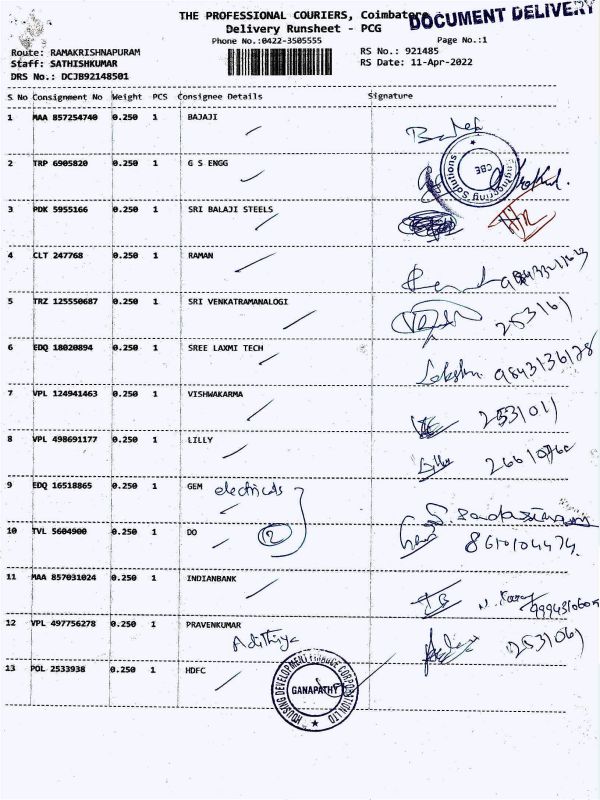 THE PROFESSIONAL COURIERS, Coimbatore
DOCUMENT DELIVERY
Delivery Runsheet - PCG
Phone No.:0422-3505555
Page No.:1
Route: RAMAKRISHNAPURAM
RS No.: 921485
Staff: SATHISHKUMAR
RS Date: 11-Apr-2022
DRS No.: DCJB92148501
S No Consignment No Weight PCS Consignee Details Signature
1 MAA 857254740 0.250 1 BAJAJI
2 TRP 6905820 0.250 1 G S ENGG
Engineering Solutions
CBE
3 PDK 5955166 0.250 1 SRI BALAJI STEELS
4 CLT 247768 0.250 1 RAMAN
5 TRZ 125550687 0.250 1 SRI VENKATRAMANALOGI
253161
6 EDQ 18020894 0.250 1 SREE LAXMI TECH
9843136128
7 VPL 124941463 0.250 1 VISHWAKARMA
8 VPL 498691177 0.250 1 LILLY
9 EDQ 16518865 0.250 1 GEM electricals
10 TVL 5604900 0.250 1 DO 2
8610104474
11 MAA 857031024 0.250 1 INDIANBANK
12 VPL 497756278 0.250 1 PRAVENKUMAR
Adithiya
2531061
13 POL 2533938 0.250 1 HDFC
HOUSING DEVELOPMENT FINANCE CORPORATION LTD
GANAPATHY